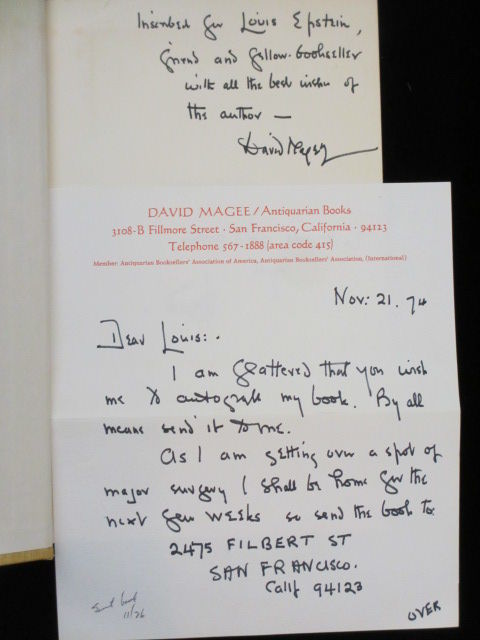 Inscribed for Louis Epstein,
friend and fellow-bookseller
with all the best wishes of
the author —
David Magee
DAVID MAGEE / Antiquarian Books
3108-B Fillmore Street · San Francisco, California · 94123
Telephone 567-1888 (area code 415)
Member: Antiquarian Booksellers' Association of America, Antiquarian Booksellers' Association, (International)
Nov: 21. 74
Dear Louis: -
I am flattered that you wish
me to autograph my book. By all
means send it to me.
As I am getting over a spot of
major surgery I shall be home for the
next few weeks so send the book to
2475 FILBERT ST
SAN FRANCISCO.
Calif 94123
Sent book
11/26
OVER